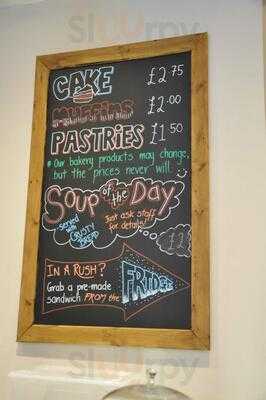 Sluurpy
CAKE £2.75
Muffins £2.00
PASTRIES £1.50
* Our bakery products may change,
but the prices never will.
Soup of the Day
served with CRUSTY BREAD
Just ask staff for details!
IN A RUSH?
Grab a pre-made
sandwich FROM the
FRIDGE
Sluurpy